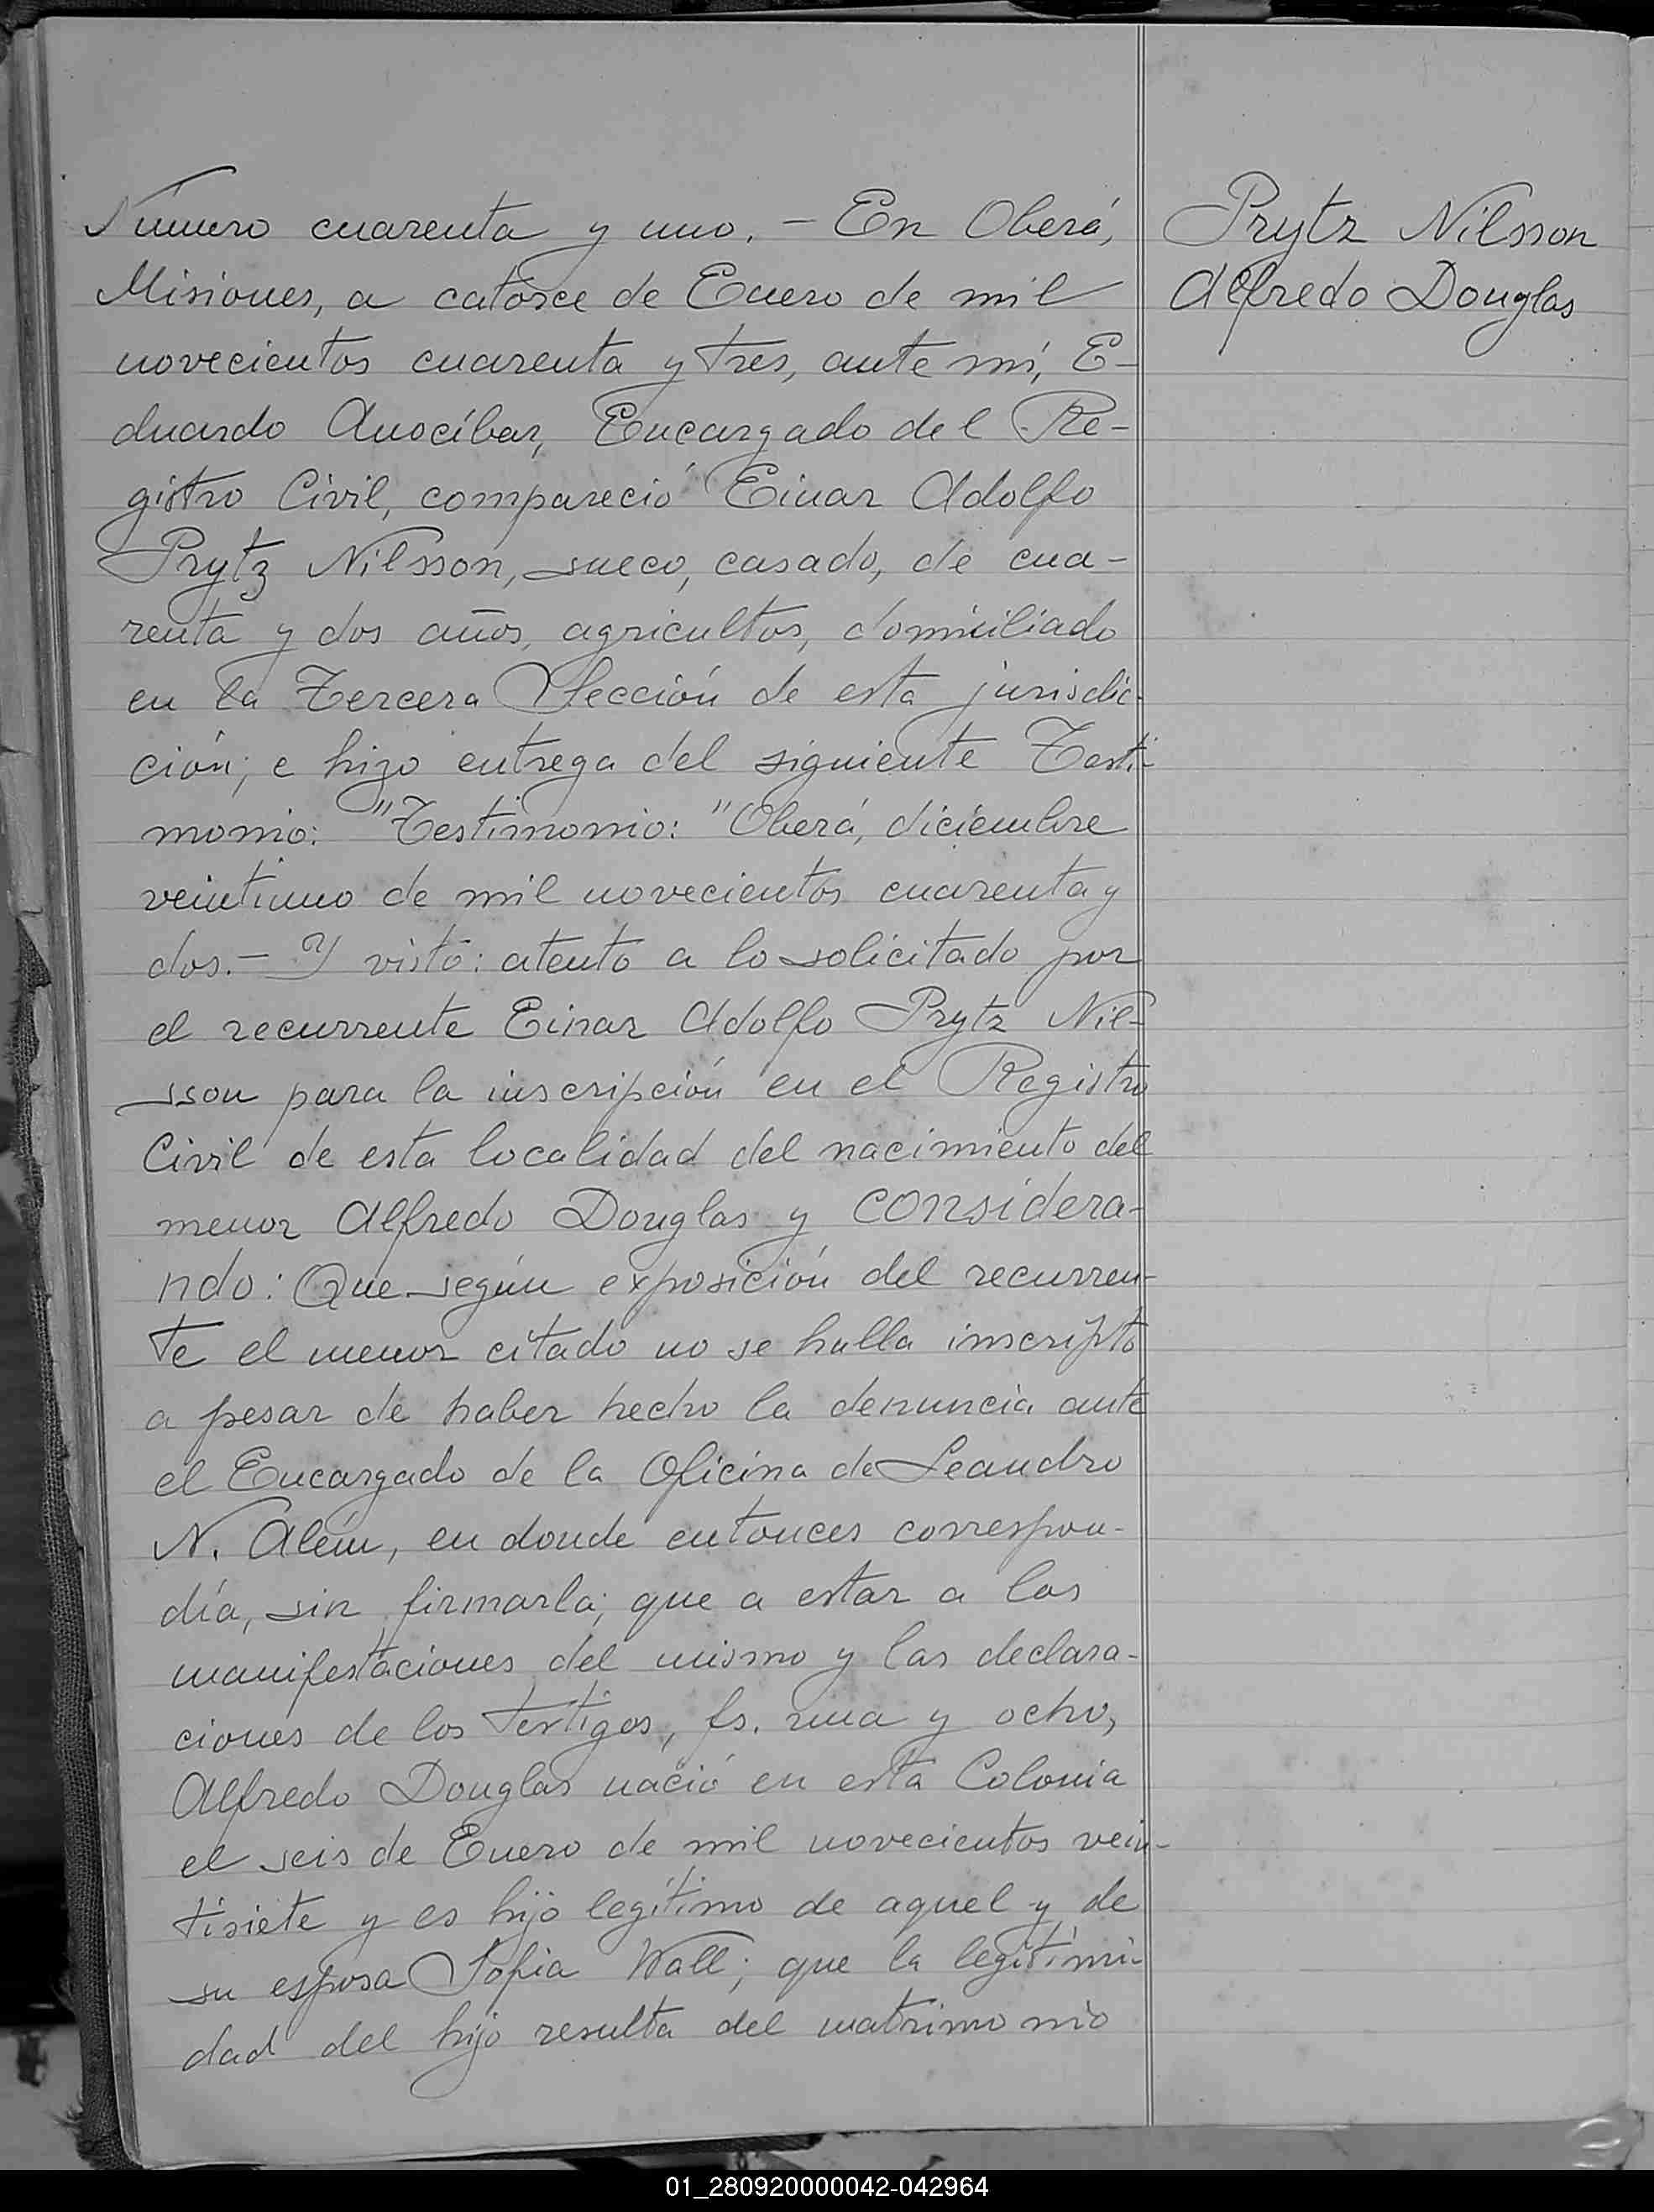 Número cuarenta y uno. - En Oberá,
Misiones, a catorce de Enero de mil
novecientos cuarenta y tres, ante mí, E-
duardo Anocíbar, Encargado del Re-
gistro Civil, compareció Einar Adolfo
Prytz Nilsson, sueco, casado, de cua-
renta y dos años, agricultor, domiciliado
en la Tercera Sección de esta jurisdic-
ción; e hizo entrega del siguiente Testi-
monio: "Testimonio: "Oberá, diciembre
veintiuno de mil novecientos cuarenta y
dos.- Y visto: atento a lo solicitado por
el recurrente Einar Adolfo Prytz Nil-
sson para la inscripción en el Registro
Civil de esta localidad del nacimiento del
menor Alfredo Douglas y considera-
ndo: Que según exposición del recurren-
te el menor citado no se halla inscripto
a pesar de haber hecho la denuncia ante
el Encargado de la Oficina de Leandro
N. Além, en donde entonces correspon-
día, sin firmarla; que a estar a las
manifestaciones del mismo y las declara-
ciones de los testigos, fs. una y ocho,
Alfredo Douglas nació en esta Colonia
el seis de Enero de mil novecientos vein-
tisiete y es hijo legítimo de aquel y de
su esposa Sofia Wall; que la legitimi-
dad del hijo resulta del matrimonio
Prytz Nilsson
Alfredo Douglas
01_280920000042-042964